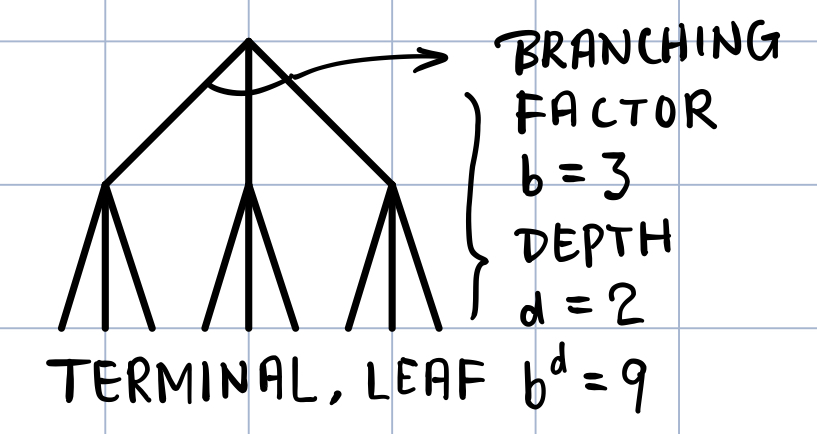 BRANCHING
FACTOR
b = 3
DEPTH
d = 2
TERMINAL, LEAF
b^d = 9